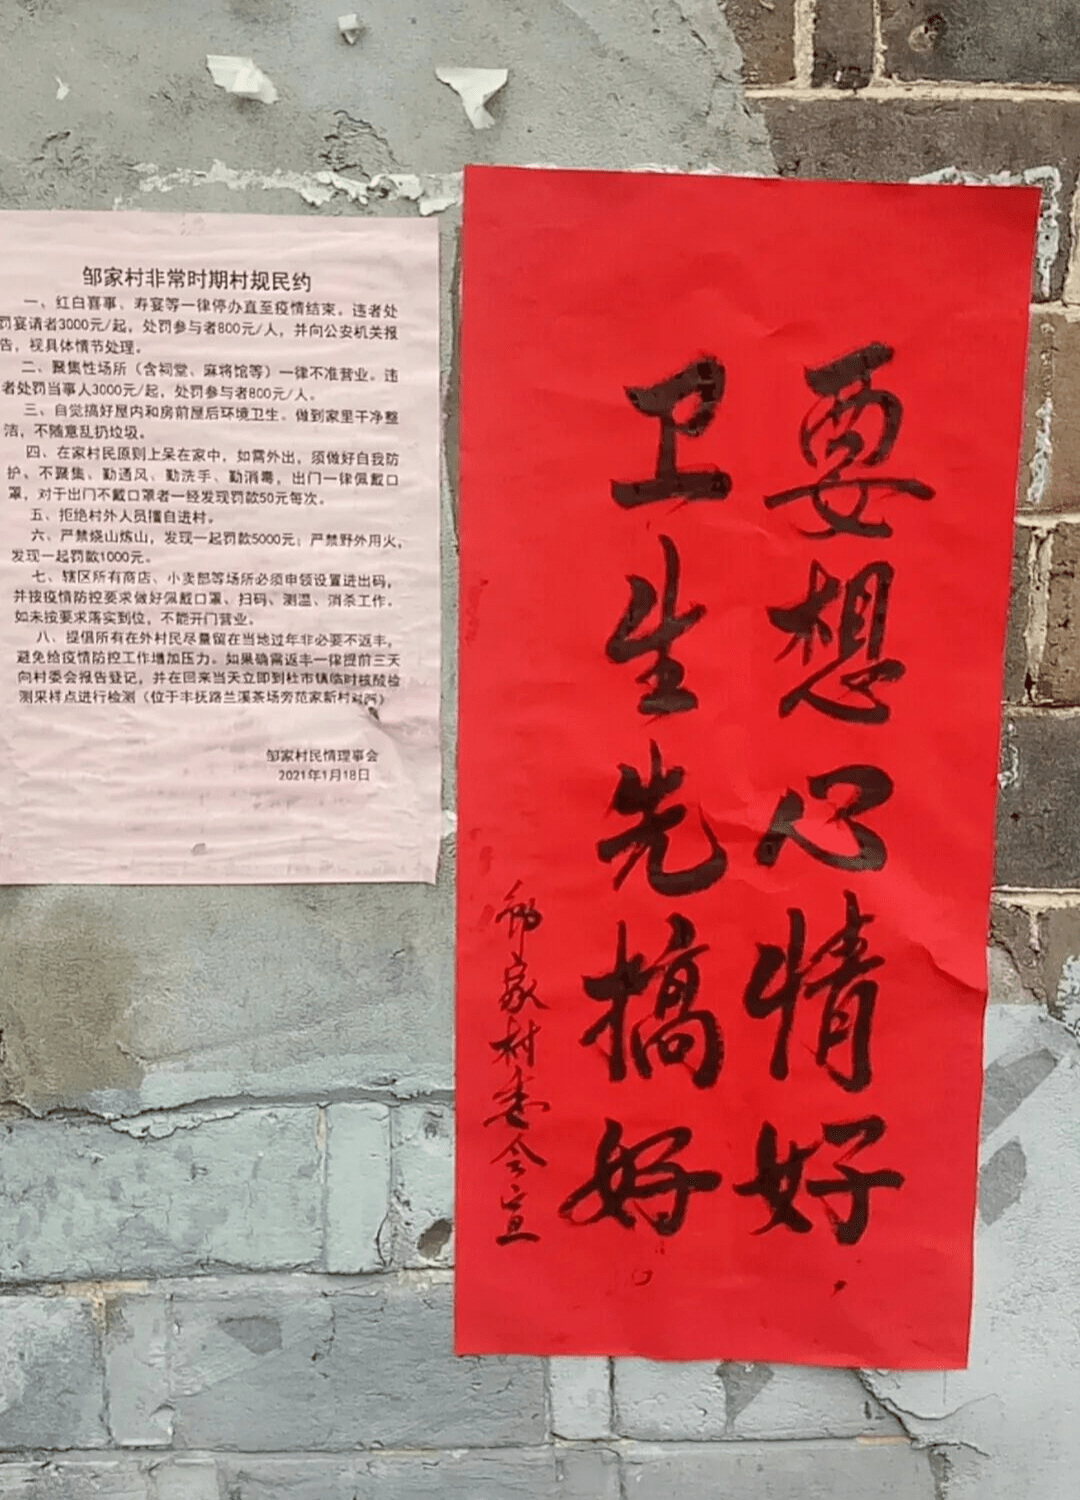 邹家村非常时期村规民约
一、红白喜事、寿宴等一律停办直至疫情结束。违者处
罚宴请者3000元/起，处罚参与者800元/人，并向公安机关报
告，视具体情节处理。
二、聚集性场所（含祠堂、麻将馆等）一律不准营业。违
者处罚当事人3000元/起，处罚参与者800元/人。
三、自觉搞好屋内和房前屋后环境卫生。做到家里干净整
洁，不随意乱扔垃圾。
四、在家村民原则上呆在家中，如需外出，须做好自我防
护。不聚集、勤通风、勤洗手、勤消毒，出门一律佩戴口
罩，对于出门不戴口罩者一经发现罚款50元每次。
五、拒绝村外人员擅自进村。
六、严禁烧山炼山，发现一起罚款5000元；严禁野外用火，
发现一起罚款1000元。
七、辖区所有商店、小卖部等场所必须申领设置进出码，
并按疫情防控要求做好佩戴口罩、扫码、测温、消杀工作。
如未按要求落实到位，不能开门营业。
八、提倡所有在外村民尽量留在当地过年非必要不返丰，
避免给疫情防控工作增加压力。如果确需返丰一律提前三天
向村委会报告登记，并在回来当天立即到杜市镇临时核酸检
测采样点进行检测（位于丰抚路兰溪茶场旁范家新村对面）
邹家村民情理事会
2021年1月18日
要想心情好
卫生先搞好
邹家村委会宣